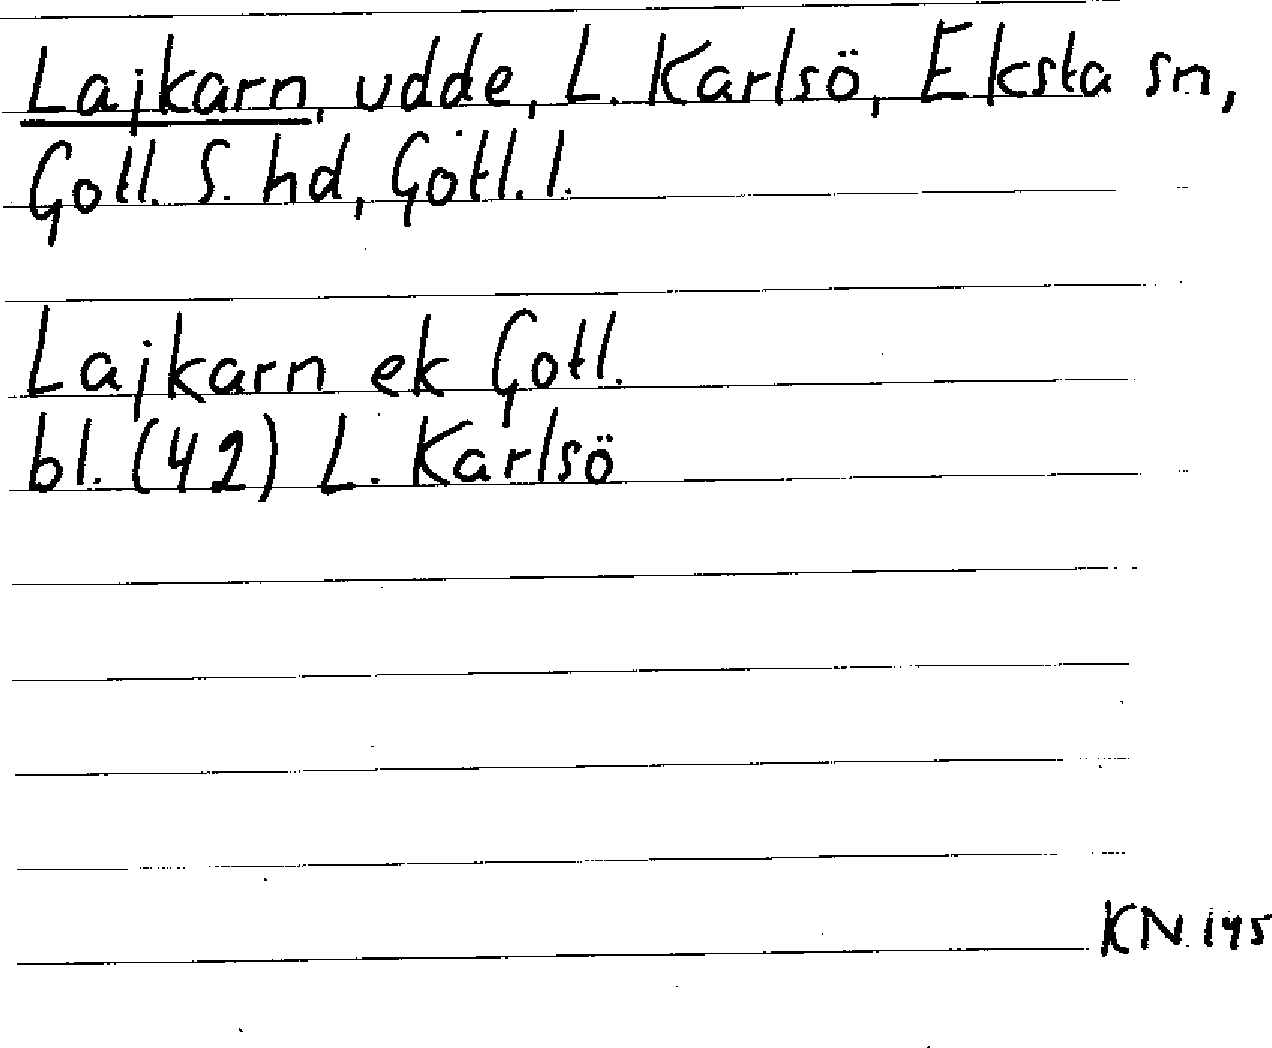 Lajkarn, udde, L. Karlsö, Eksta sn,
Gotl. S. hd, Gotl. l.
Lajkarn ek Gotl.
bl. (42) L. Karlsö
KN 145